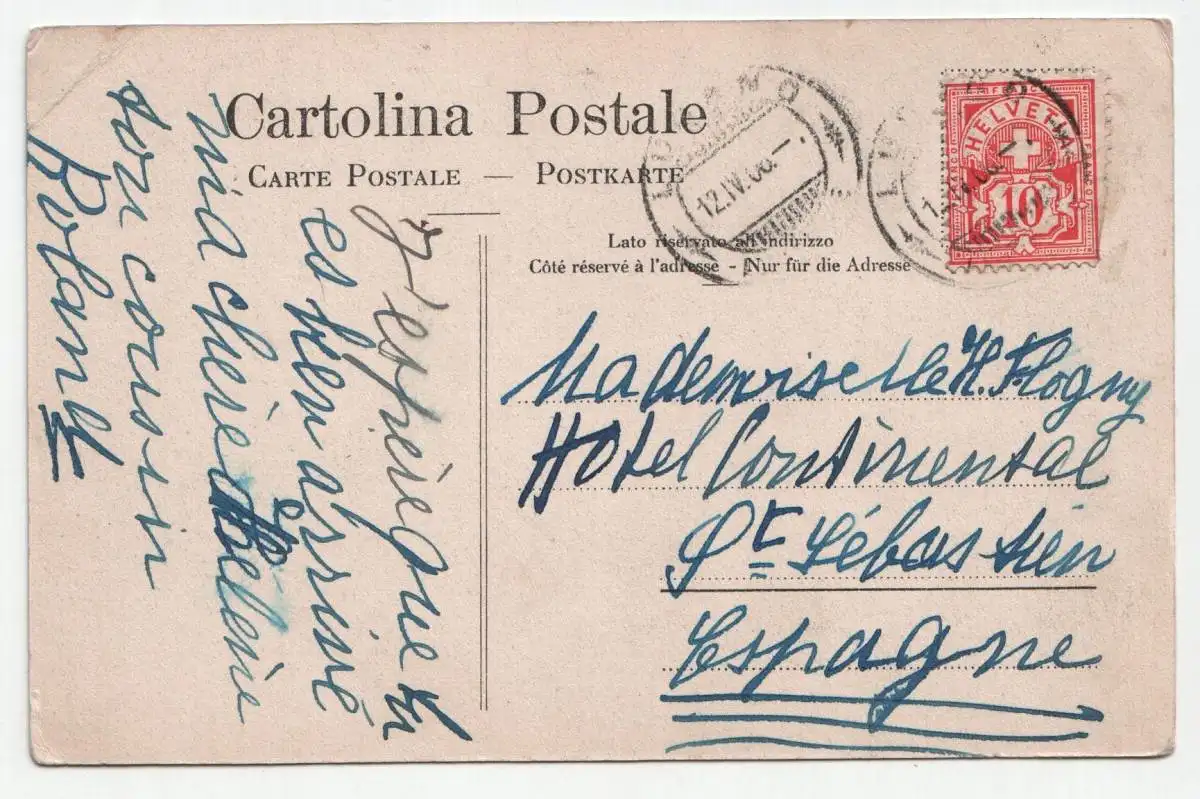 Cartolina Postale
CARTE POSTALE — POSTKARTE
Lato riservato all'indirizzo
Côté réservé à l'adresse - Nur für die Adresse
LUGANO
12.IV.06.-
LUGANO
FRANCO
HELVETIA
10
Mademoiselle H. Flogny
Hôtel Continental
St Sébastien
Espagne
J'espère que tu
es bien arrivé
ma chère Hélène
ton cousin